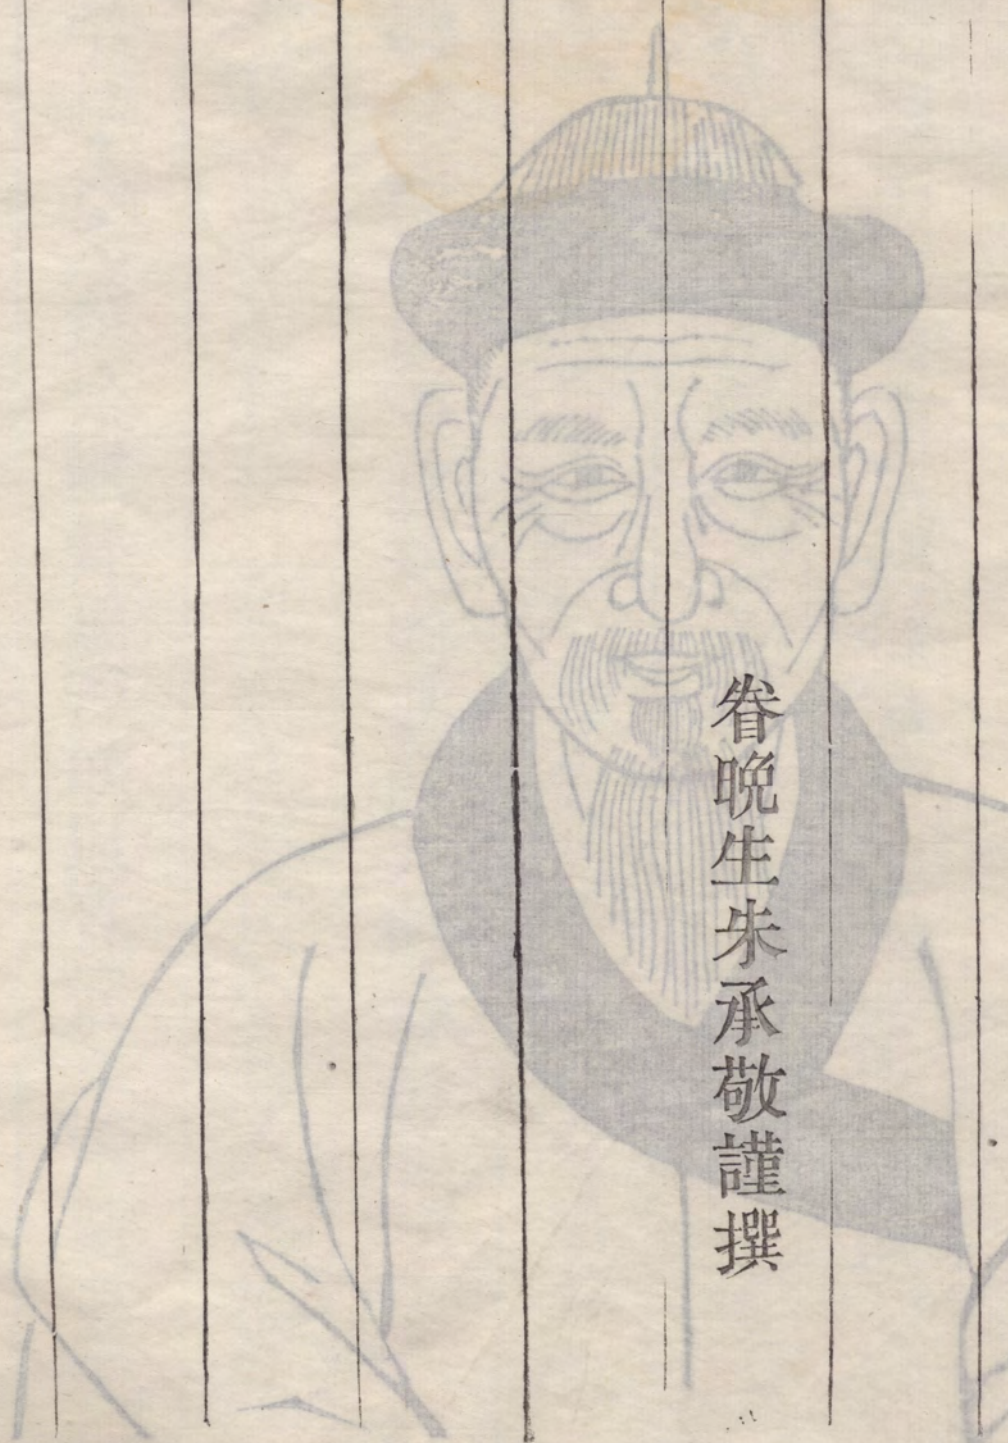 眷晚生朱承敬謹撰